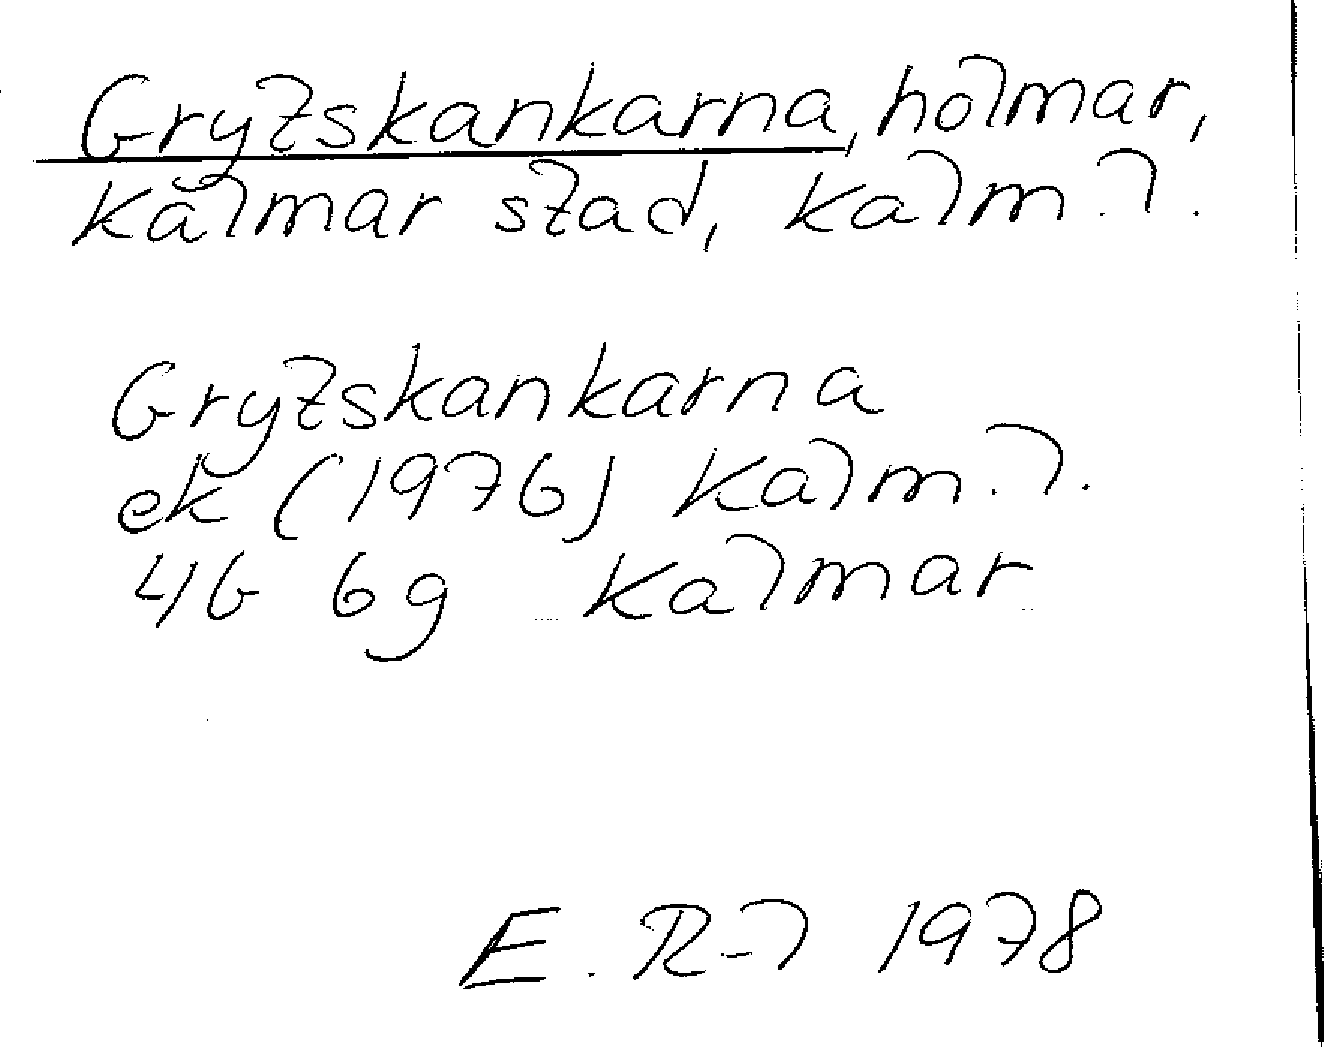 Grytskankarna, holmar,
Kalmar stad, Kalm. l.
Grytskankarna
ek (1976) Kalm. l.
4G 6g Kalmar
E. R-l 1978